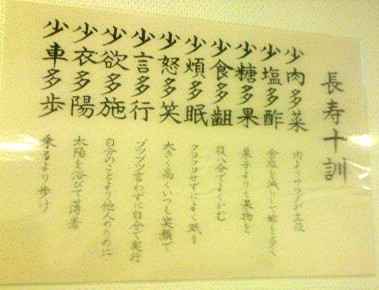 長寿十訓
少肉多菜
肉よりサラダが主役
少塩多酢
食塩を減らして酢を多く
少糖多果
菓子より果物を
少食多齟
腹八分でよくかむ
少煩多眠
クヨクヨせずによく眠る
少怒多笑
大きく高くいつも笑顔で
少言多行
ブツブツ言わずに自分で実行
少欲多施
自分のことより他人のために
少衣多陽
太陽を浴びて薄着
少車多歩
乗るより歩け